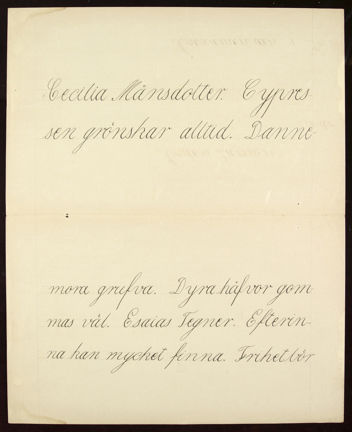 Cecilia Månsdotter. Cypres-
sen grönskar alltid. Danne-
mora grufva. Dyra håfvor göm-
mas väl. Esaias Tegner. Efterin-
na kan mycket finna. Frihet bör